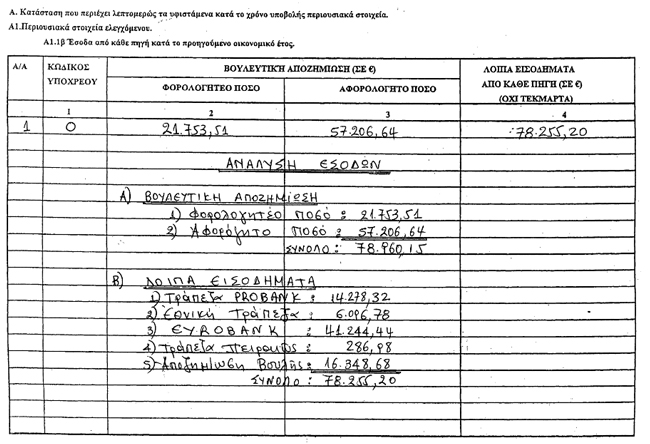 Α. Κατάσταση που περιέχει λεπτομερώς τα υφιστάμενα κατά το χρόνο υποβολής περιουσιακά στοιχεία.
Α1.Περιουσιακά στοιχεία ελεγχόμενου.
Α1.1β Έσοδα από κάθε πηγή κατά το προηγούμενο οικονομικό έτος.
Α/Α ΚΩΔΙΚΟΣ ΥΠΟΧΡΕΟΥ ΒΟΥΛΕΥΤΙΚΗ ΑΠΟΖΗΜΙΩΣΗ (ΣΕ €) ΛΟΙΠΑ ΕΙΣΟΔΗΜΑΤΑ
ΑΠΟ ΚΑΘΕ ΠΗΓΗ (ΣΕ €)
ΦΟΡΟΛΟΓΗΤΕΟ ΠΟΣΟ ΑΦΟΡΟΛΟΓΗΤΟ ΠΟΣΟ (ΟΧΙ ΤΕΚΜΑΡΤΑ)
1 2 3 4
1 0 21.753,51 57.206,64 78.255,20
ΑΝΑΛΥΣΗ ΕΣΟΔΩΝ
Α) ΒΟΥΛΕΥΤΙΚΗ ΑΠΟΖΗΜΙΩΣΗ
1) Φορολογητέο ΠΟΣΟ : 21.753,51
2) Αφορόγητο ΠΟΣΟ : 57.206,64
ΣΥΝΟΛΟ : 78.960,15
Β) ΛΟΙΠΑ ΕΙΣΟΔΗΜΑΤΑ
1) Τράπεζα PROBANK : 14.278,32
2) Εθνική Τράπεζα : 6.096,78
3) EYROBANK : 41.244,44
4) Τράπεζα Πειραιώς : 286,98
5) Αποζημίωση Βουλής : 16.348,68
ΣΥΝΟΛΟ : 78.255,20